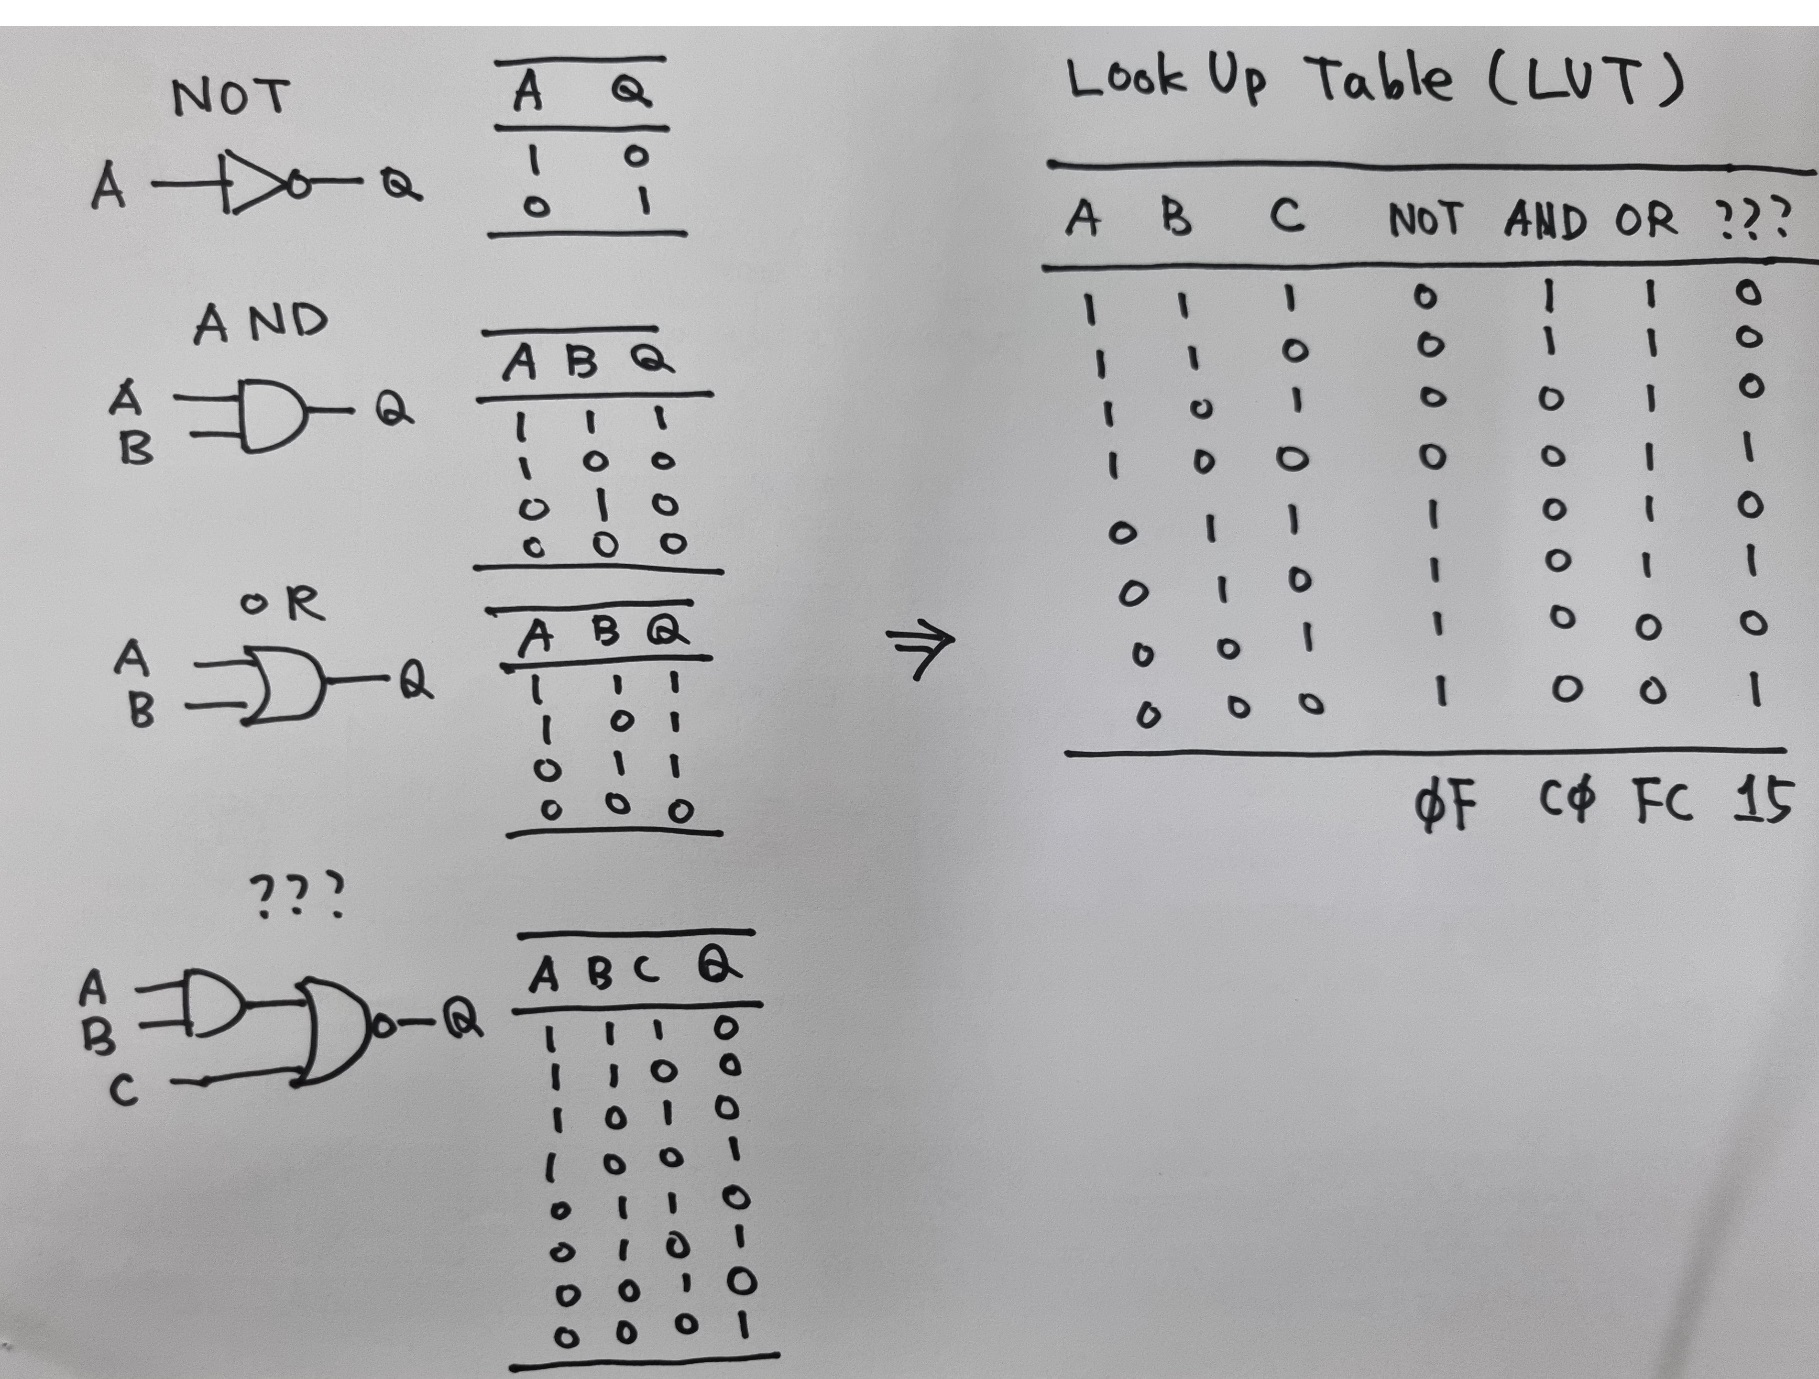 NOT
A Q
A Q
1 0
0 1
AND
A B Q
A
B
Q
1 1 1
1 0 0
0 1 0
0 0 0
OR
A B Q
A
B
Q
1 1 1
1 0 1
0 1 1
0 0 0
???
A B C Q
A
B
C
Q
1 1 1 0
1 1 0 0
1 0 1 0
1 0 0 1
0 1 1 0
0 1 0 1
0 0 1 0
0 0 0 1
⇒
Look Up Table (LUT)
A B C NOT AND OR ???
1 1 1 0 1 1 0
1 1 0 0 1 1 0
1 0 1 0 0 1 0
1 0 0 0 0 1 1
0 1 1 1 0 1 0
0 1 0 1 0 1 1
0 0 1 1 0 0 0
0 0 0 1 0 0 1
0F C0 FC 15